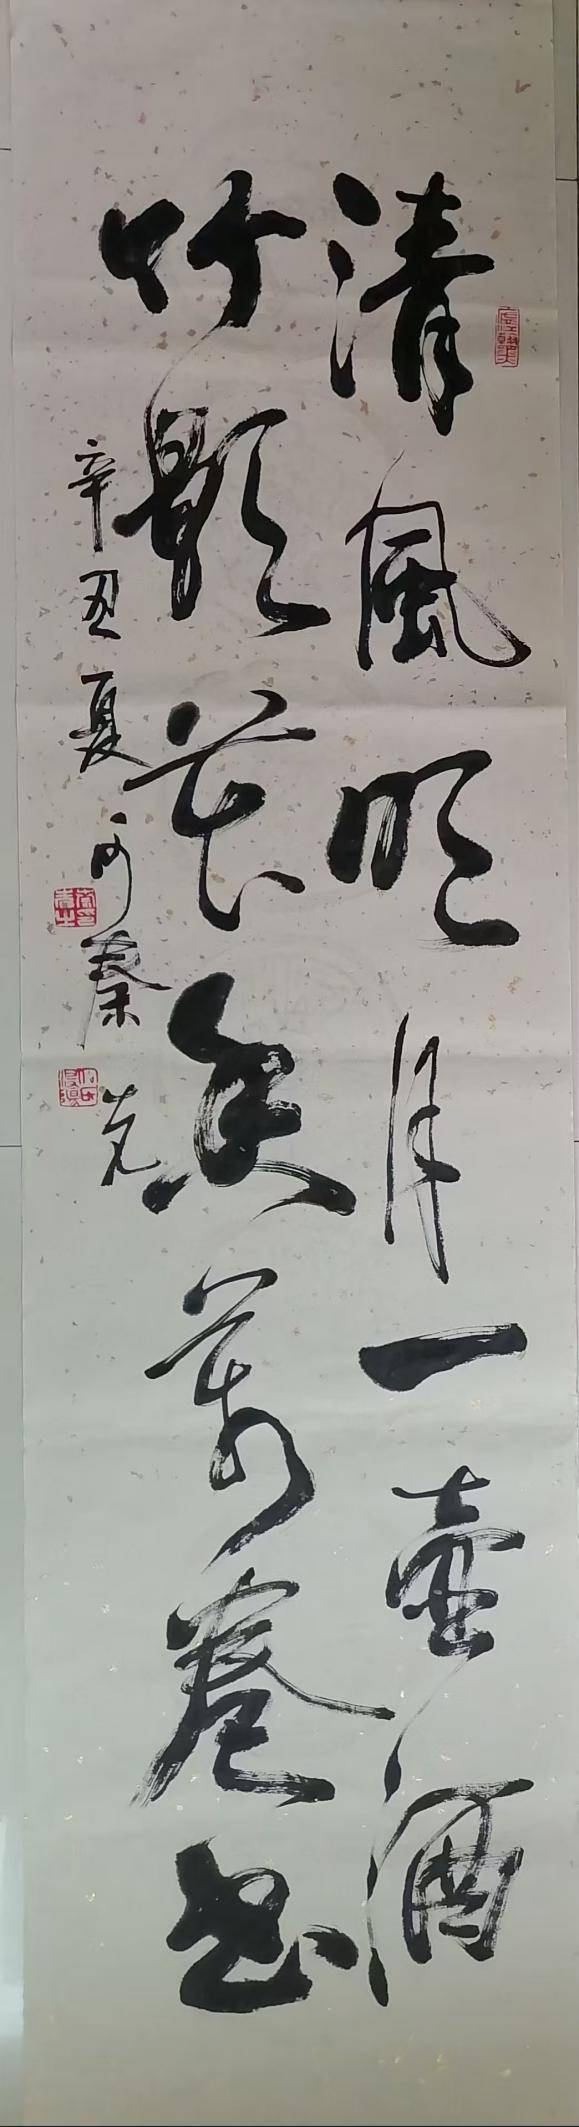 清風明月一壺酒
竹影花香萬卷書
辛丑夏 秦克